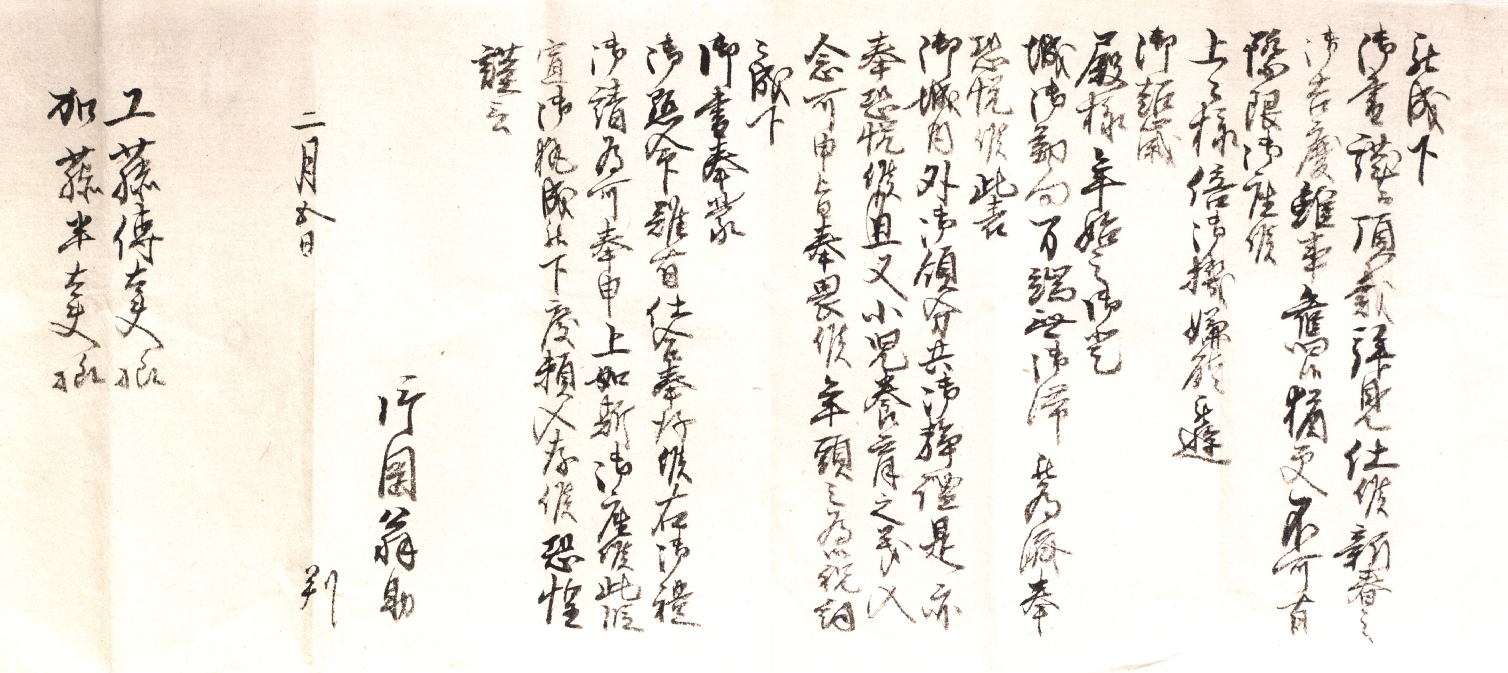 被成下
御書謹而頂戴拝見仕候新春之
御吉慶雖事舊候猶更不可有
際限御座候
上々様倍御機嫌能被遊
御超歳
殿様年始之御登
城御勤向万端無御滞被為済奉
恐悦候此表
御城内外御領分共御静謐是亦
奉恐悦候且又小児養育之義入
念可申旨奉畏候年頭之為御祝詞
被成下
御書奉蒙
御懇命難有仕合奉存候右御禮
御請為可奉申上如斯御座候此段
宜御執成被下度頼入存候恐惶
謹言
片岡翁助
判
二月五日
工藤傳太夫様
加藤半太夫様